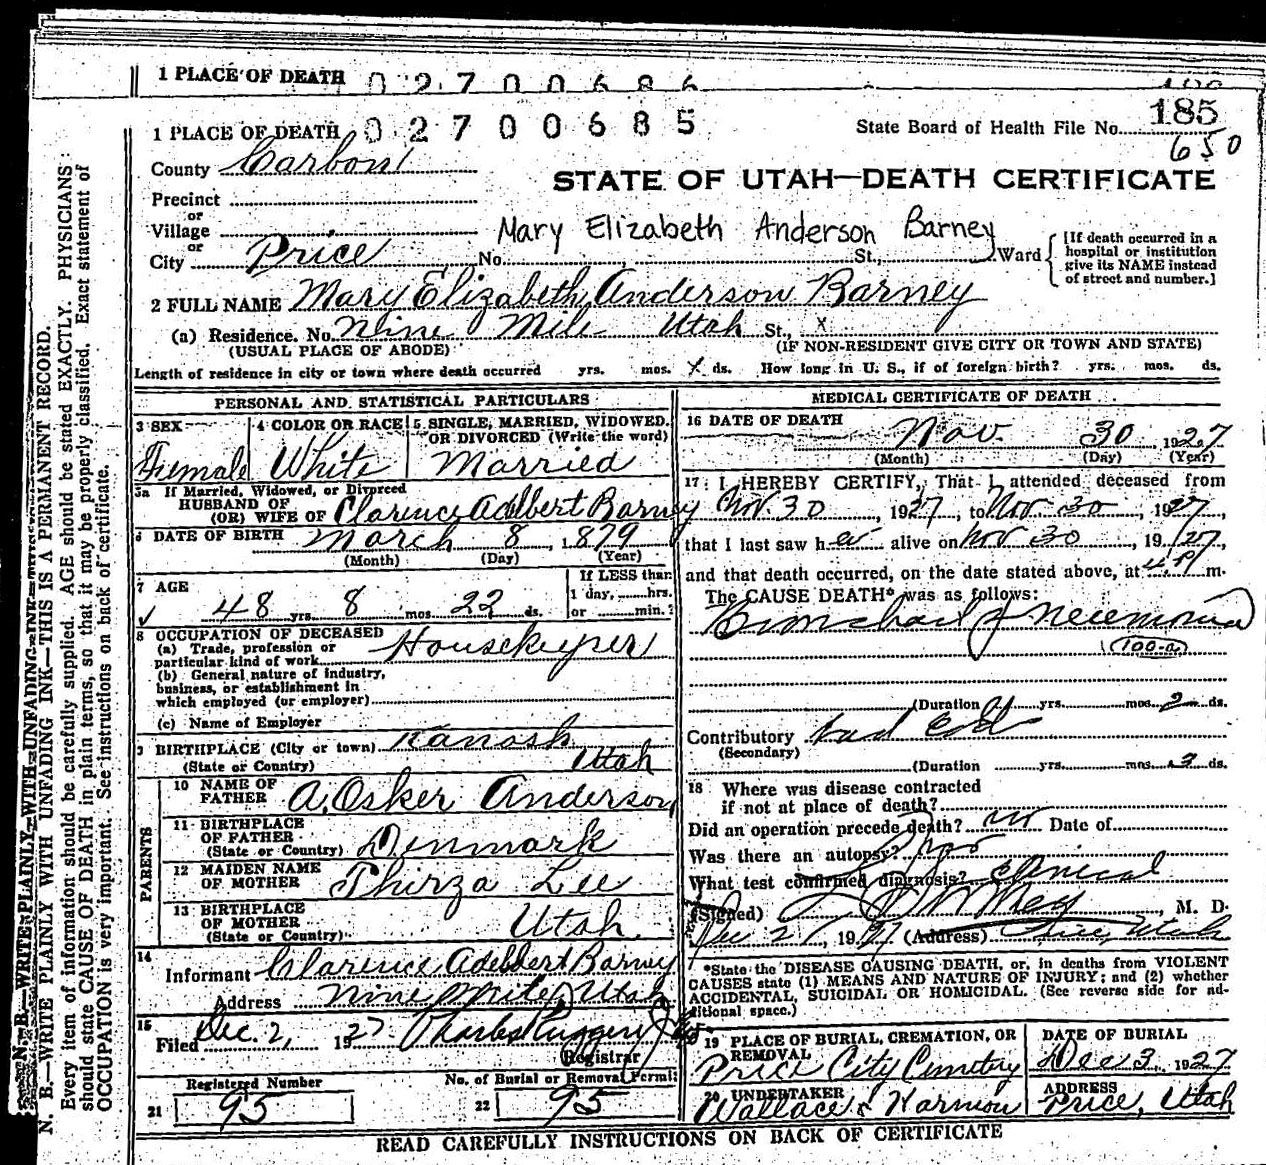 1 PLACE OF DEATH 02700686
1 PLACE OF DEATH 02700685
State Board of Health File No. 185
650
County Carbon
STATE OF UTAH—DEATH CERTIFICATE
Precinct
or
Village
Mary Elizabeth Anderson Barney
or
City Price No. St., Ward
[If death occurred in a
hospital or institution
give its NAME instead
of street and number.]
2 FULL NAME Mary Elizabeth Anderson Barney
(a) Residence. No. Nine Mile Utah St., x
(USUAL PLACE OF ABODE) (IF NON-RESIDENT GIVE CITY OR TOWN AND STATE)
Length of residence in city or town where death occurred yrs. mos. ds. How long in U. S., if of foreign birth? yrs. mos. ds.
PERSONAL AND STATISTICAL PARTICULARS
3 SEX 4 COLOR OR RACE 5 SINGLE, MARRIED, WIDOWED,
OR DIVORCED (Write the word)
Female White Married
5a If Married, Widowed, or Divorced
HUSBAND OF
(OR) WIFE OF Clarence Adelbert Barney
6 DATE OF BIRTH March 8, 1879
(Month) (Day) (Year)
7 AGE
48 yrs. 8 mos. 22 ds.
If LESS than
1 day,......hrs.
or ......min.?
8 OCCUPATION OF DECEASED
(a) Trade, profession or
particular kind of work Housekeeper
(b) General nature of industry,
business, or establishment in
which employed (or employer)
(c) Name of Employer
9 BIRTHPLACE (City or town) Kanosh
(State or Country) Utah
PARENTS
10 NAME OF
FATHER A. Osker Anderson
11 BIRTHPLACE
OF FATHER
(State or Country) Denmark
12 MAIDEN NAME
OF MOTHER Thirza Lee
13 BIRTHPLACE
OF MOTHER
(State or Country) Utah
14
Informant Clarence Adelbert Barney
Address Nine Mile, Utah
15
Filed Dec. 2, 1927
Registrar
Registered Number No. of Burial or Removal Permit
21 95 22 95
MEDICAL CERTIFICATE OF DEATH
16 DATE OF DEATH
Nov. 30 1927
(Month) (Day) (Year)
17 I HEREBY CERTIFY, That I attended deceased from
Nov. 30, 1927, to Nov. 30, 1927,
that I last saw her alive on Nov 30, 1927,
and that death occurred, on the date stated above, at 4 P m.
The CAUSE DEATH* was as follows:
Bronchial Pneumonia
(100-a)
(Duration yrs. mos. 2 ds.
Contributory bad cold
(Secondary)
(Duration yrs. mos. 3 ds.
18 Where was disease contracted
if not at place of death?
Did an operation precede death? no Date of
Was there an autopsy? no
What test confirmed diagnosis? clinical
(Signed) , M. D.
Dec 2, 1927 (Address) Price, Utah
*State the DISEASE CAUSING DEATH, or, in deaths from VIOLENT
CAUSES state (1) MEANS AND NATURE OF INJURY; and (2) whether
ACCIDENTAL, SUICIDAL OR HOMICIDAL. (See reverse side for ad-
ditional space.)
19 PLACE OF BURIAL, CREMATION, OR
REMOVAL
Price City Cemetery
DATE OF BURIAL
Dec 3, 1927
20 UNDERTAKER
Wallace & Harmon
ADDRESS
Price, Utah
READ CAREFULLY INSTRUCTIONS ON BACK OF CERTIFICATE
N. B.—WRITE PLAINLY WITH UNFADING INK—THIS IS A PERMANENT RECORD.
Every item of information should be carefully supplied. AGE should be stated EXACTLY. PHYSICIANS
should state CAUSE OF DEATH in plain terms, so that it may be properly classified. Exact statement of
OCCUPATION is very important. See instructions on back of certificate.